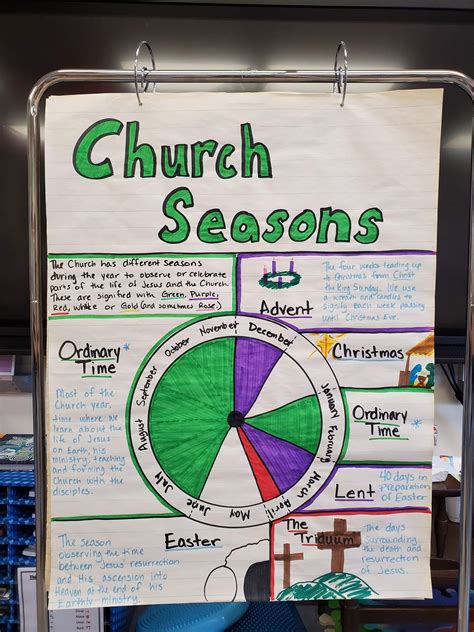 Church
Seasons
The Church has different seasons
during the year to observe or celebrate
parts of the life of Jesus and the Church.
These are signified with Green, Purple,
Red, white or Gold (and sometimes Rose)
Advent
The four weeks leading up
to Christmas from Christ
the King Sunday. We use
a wreath and candles to
signify each week passing
until Christmas Eve.
Christmas
Ordinary
Time *
Ordinary
Time *
Most of the
Church year,
time where we
learn about the
life of Jesus
on Earth, his
ministry, teaching
and forming the
Church with the
disciples.
January
February
March
April
May
June
July
August
September
October
November
December
Lent
40 days in
Preparation
of Easter
Easter
The season
observing the time
between Jesus' resurrection
and His ascension into
Heaven at the end of his
Earthly ministry.
The
Triduum
The days
surrounding
the death and
resurrection
of Jesus.